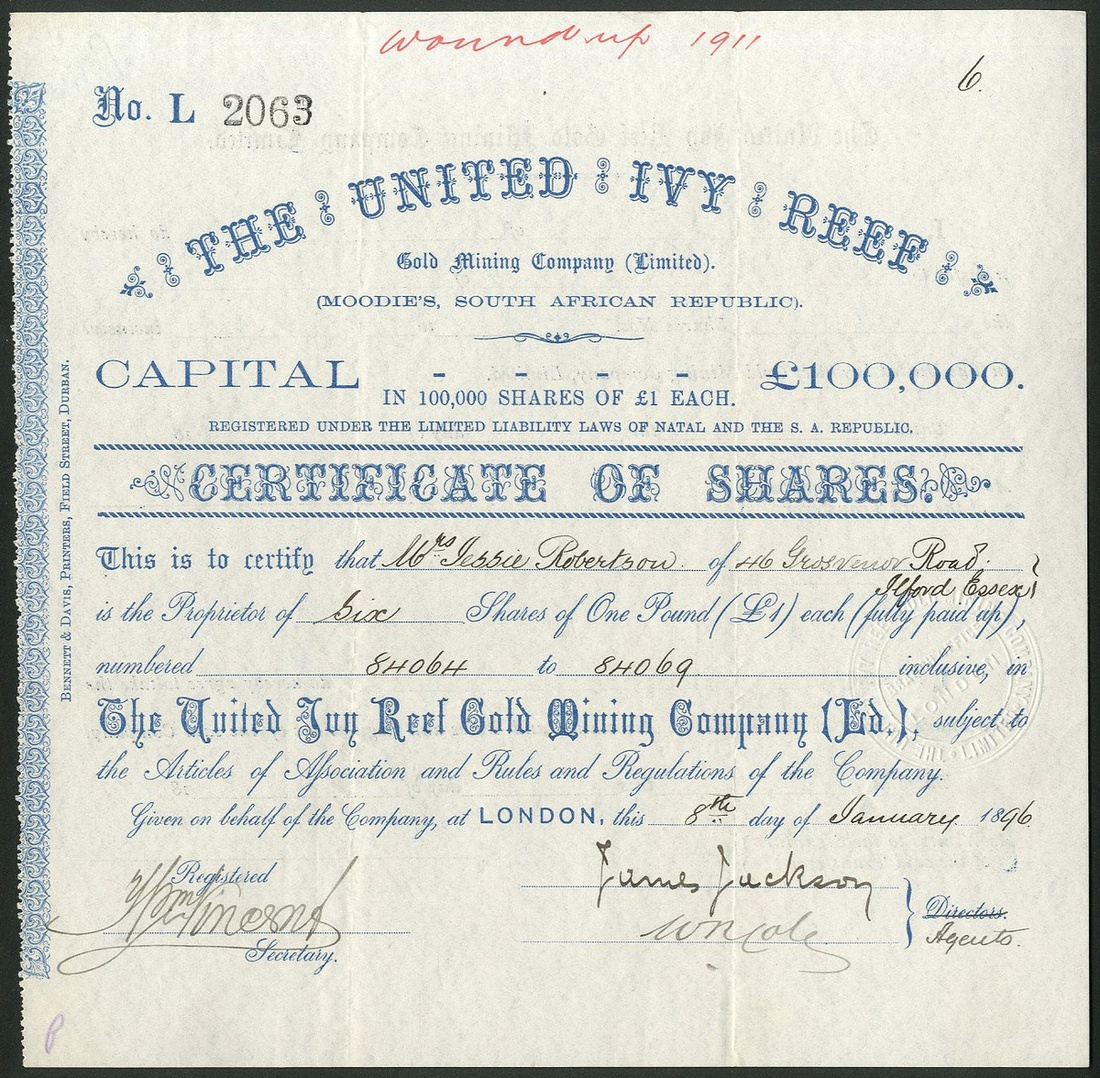 Wound up 1911
6.
No. L 2063
THE UNITED IVY REEF
Gold Mining Company (Limited).
(MOODIE'S, SOUTH AFRICAN REPUBLIC).
CAPITAL - - - £100,000.
IN 100,000 SHARES OF £1 EACH.
REGISTERED UNDER THE LIMITED LIABILITY LAWS OF NATAL AND THE S. A. REPUBLIC.
CERTIFICATE OF SHARES.
This is to certify that Mrs Jessie Robertson of 46 Grosvenor Road
Ilford Essex
is the Proprietor of Six Shares of One Pound (£1) each (fully paid up),
numbered 84064 to 84069 inclusive, in
The United Ivy Reef Gold Mining Company (Ld.), subject to
the Articles of Association and Rules and Regulations of the Company.
Given on behalf of the Company, at LONDON, this 8th day of January 1896
Registered
Vincent
Secretary.
James Jackson
Directors.
Agents.
BENNETT & DAVIS, PRINTERS, FIELD STREET, DURBAN.